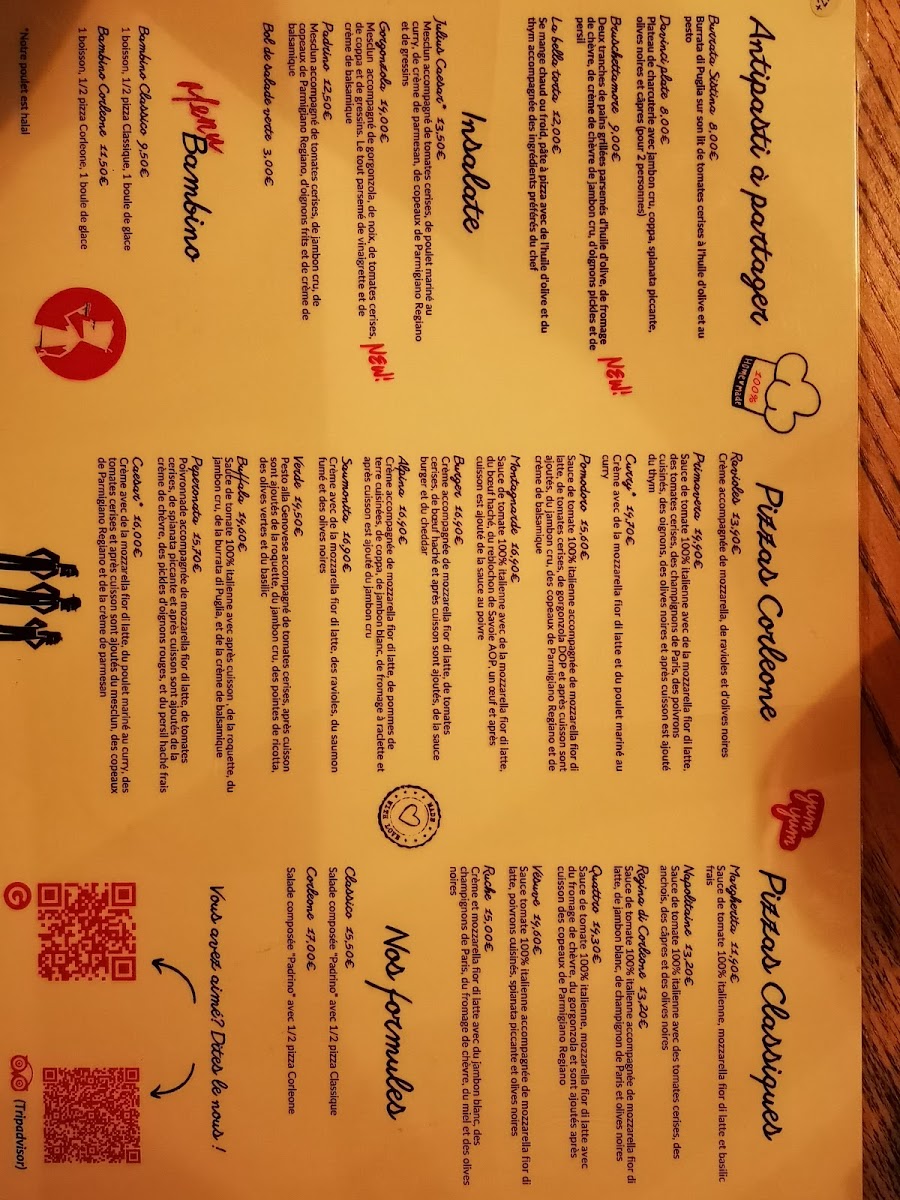 Antipasti à partager
Burrata Sittina 8.00€
Burrata di Puglia sur son lit de tomates cerises à l'huile d'olive et au
pesto
Davinci plate 8.00€
Plateau de charcuterie avec jambon cru, coppa, spianata piccante,
olives noires et câpres (pour 2 personnes)
Bruschettamore 9,00€
Deux tranches de pains grillées parsemés d'huile d'olive, de fromage
de chèvre, de crème de chèvre de jambon cru, d'oignons pickles et de
persil
NEW!
La bella torta 12,00€
Se mange chaud ou froid, pâte à pizza avec de l'huile d'olive et du
thym accompagnée des ingrédients préférés du chef
Insalate
Julius Caesar* 13,50€
Mesclun accompagné de tomates cerises, de poulet mariné au
curry, de crème de parmesan, de copeaux de Parmigiano Regiano
et de gressins
Gorgonzola 14,00€
Mesclun accompagné de gorgonzola, de noix, de tomates cerises,
de coppa et de gressins. Le tout parsemé de vinaigrette et de
crème de balsamique
NEW!
Padrino 12,50€
Mesclun accompagné de tomates cerises, de jambon cru, de
copeaux de Parmigiano Regiano, d'oignons frits et de crème de
balsamique
Bol de salade verte 3,00€
Menu
Bambino
Bambino Classico 9,50€
1 boisson, 1/2 pizza Classique, 1 boule de glace
Bambino Corleone 11,50€
1 boisson, 1/2 pizza Corleone, 1 boule de glace
*Notre poulet est halal
100%
HOMEMADE
Pizzas Corleone
Ravioles 13,90€
Crème accompagnée de mozzarella, de ravioles et d'olives noires
Primavera 14,90€
Sauce de tomate 100% italienne avec de la mozzarella fior di latte,
des tomates cerises, des champignons de Paris, des poivrons
cuisinés, des oignons, des olives noires et après cuisson est ajouté
du thym
Curry* 14,70€
Crème avec de la mozzarella fior di latte et du poulet mariné au
curry
Pomodoro 15,60€
Sauce de tomate 100% italienne accompagnée de mozzarella fior di
latte, de tomates cerises, de gorgonzola DOP et après cuisson sont
ajoutés, du jambon cru, des copeaux de Parmigiano Regiano et de
crème de balsamique
Montagnarde 16,90€
Sauce de tomate 100% italienne avec de la mozzarella fior di latte,
du bœuf haché, du reblochon de Savoie AOP, un œuf et après
cuisson est ajouté de la sauce au poivre
Burger 16,90€
Crème accompagnée de mozzarella fior di latte, de tomates
cerises, de bœuf haché et après cuisson sont ajoutés, de la sauce
burger et du cheddar
Alpina 16,90€
Crème accompagnée de mozzarella fior di latte, de pommes de
terre cuisinées, de coppa, de jambon blanc, de fromage à raclette et
après cuisson est ajouté du jambon cru
Saumonita 16,90€
Crème avec de la mozzarella fior di latte, des ravioles, du saumon
fumé et des olives noires
Verde 14,50€
Pesto alla Genovese accompagné de tomates cerises, après cuisson
sont ajoutés de la roquette, du jambon cru, des pointes de ricotta,
des olives vertes et du basilic
Buffala 14,60€
Sauce de tomate 100% italienne avec après cuisson, de la roquette, du
jambon cru, de la burrata di Puglia, et de la crème de balsamique
Peperonata 15,70€
Poivronnade accompagnée de mozzarella fior di latte, de tomates
cerises, de spianata piccante et après cuisson sont ajoutés de la
crème de chèvre, des pickles d'oignons rouges, et du persil haché frais
Caesar* 16,00€
Crème avec de la mozzarella fior di latte, du poulet mariné au curry, des
tomates cerises et après cuisson sont ajoutés du mesclun, des copeaux
de Parmigiano Regiano et de la crème de parmesan
yum
yum
Pizzas Classiques
Margherita 11,90€
Sauce de tomate 100% italienne, mozzarella fior di latte et basilic
frais
Napolitaine 13,20€
Sauce de tomate 100% italienne avec des tomates cerises, des
anchois, des câpres et des olives noires
Regina di Corleone 13,20€
Sauce de tomate 100% italienne accompagnée de mozzarella fior di
latte, de jambon blanc, de champignon de Paris et olives noires
Quatro 14,30€
Sauce de tomate 100% italienne, mozzarella fior di latte avec
du fromage de chèvre, du gorgonzola et sont ajoutés après
cuisson des copeaux de Parmigiano Regiano
Vésuve 14,00€
Sauce tomate 100% italienne accompagnée de mozzarella fior di
latte, poivrons cuisinés, spianata piccante et olives noires
Ruche 15,00€
Crème et mozzarella fior di latte avec du jambon blanc, des
champignons de Paris, du fromage de chèvre, du miel et des olives
noires
Nos formules
Classico 15,50€
Salade composée "Padrino" avec 1/2 pizza Classique
Corleone 17,00€
Salade composée "Padrino" avec 1/2 pizza Corleone
Vous avez aimé? Dites le nous !
G
(Tripadvisor)